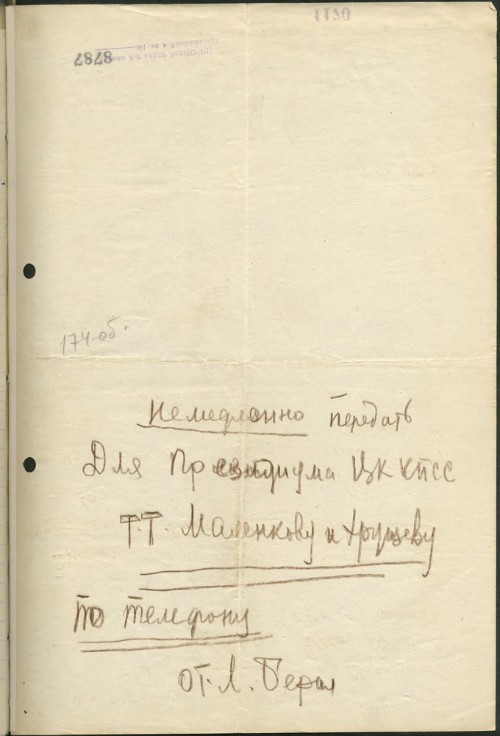 1170
8787
174-об.
Немедленно передать
Для Президиума ЦК КПСС
т.т. Маленкову и Хрущеву
по телефону
от Л. Берия